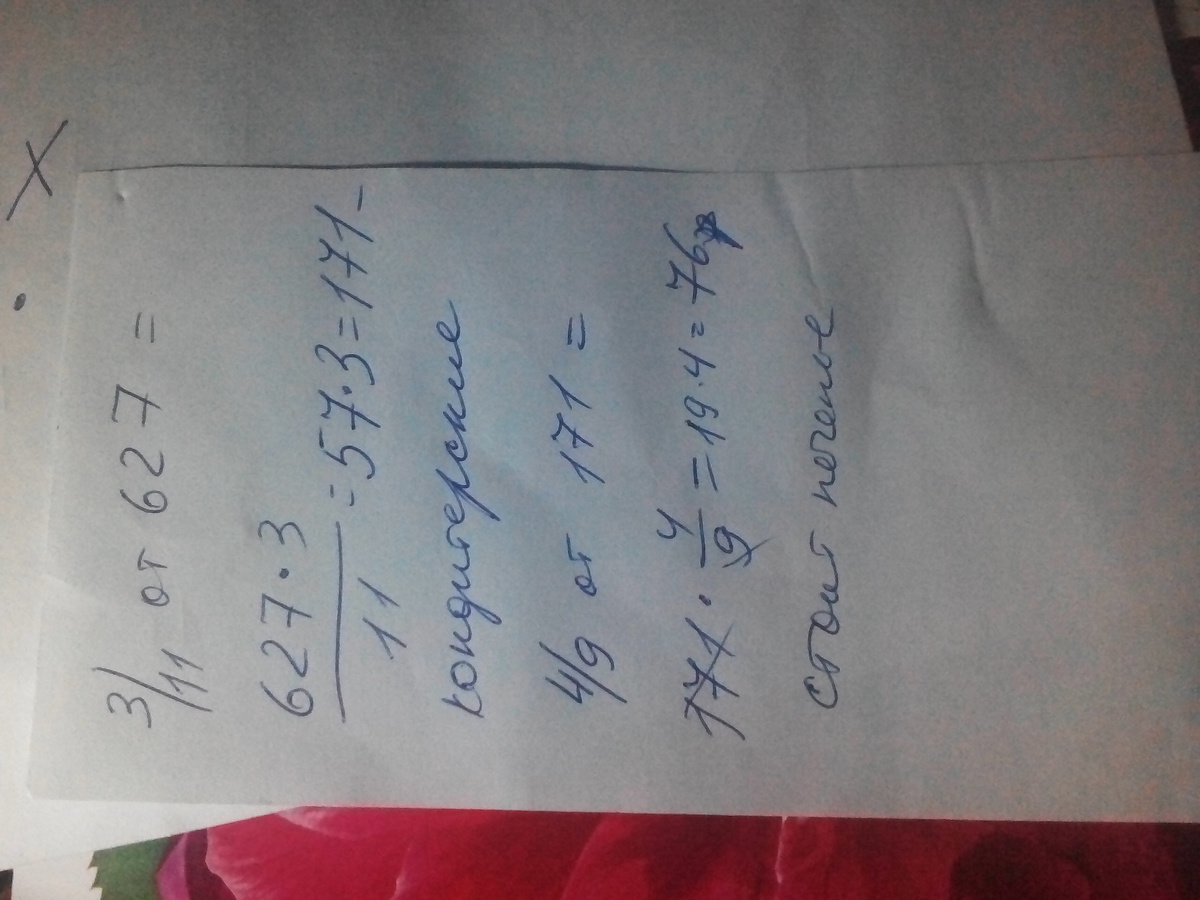 3/11 от 627 =
627 · 3
11
= 57 · 3 = 171 -
кондитерские
4/9 от 171 =
171 · 4/9 = 19 · 4 = 76
стоит печенье
X